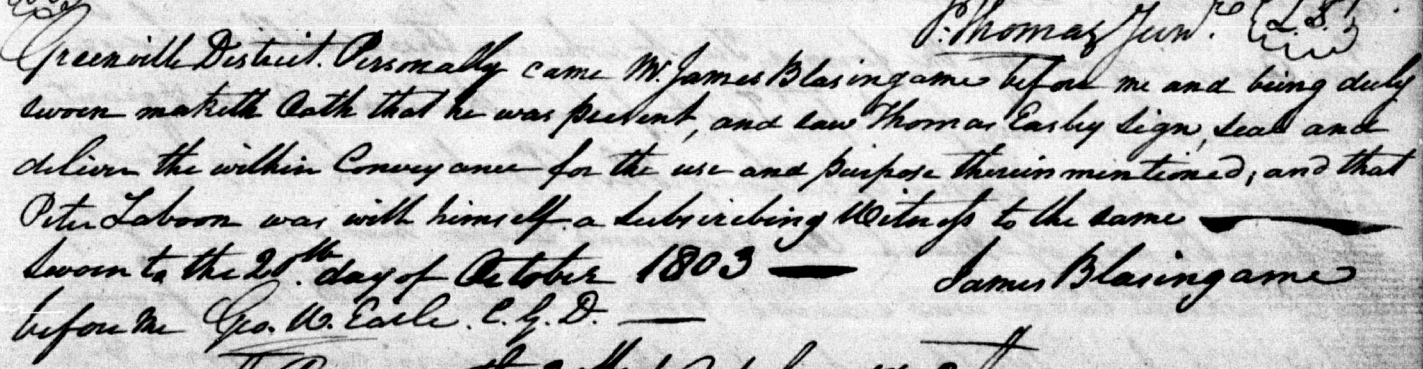 P. Thomas Junr. (L.S.)
Greenville District. Personally came Mr. James Blasingame before me and being duly
sworn maketh Oath that he was present, and saw Thomas Easley sign, seal and
deliver the within Conveyance for the use and purpose therein mentioned, and that
Peter Laboon was with himself a Subscribing Witness to the same
Sworn to the 20th. day of October 1803 — James Blasingame
before me Geo. W. Earle. C. G. D. —